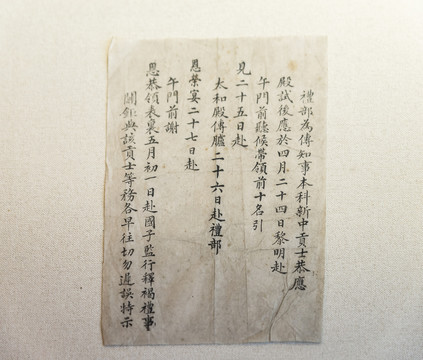 禮部為傳知事本科新中貢士恭應
殿試後應於四月二十四日黎明赴
午門前聽候帶領前十名引
見二十五日赴
太和殿傳臚二十六日赴禮部
恩榮宴二十七日赴
午門前謝
恩恭領表裏五月初一日赴國子監行釋褐禮事
關鉅典該貢士等務各早往切勿遲誤特示